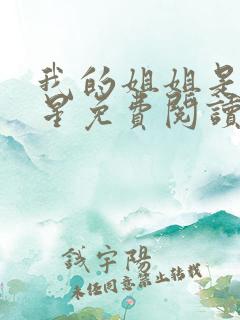 我的姐姐是
星免費閱讀
錢宇陽
未經同意禁止轉載